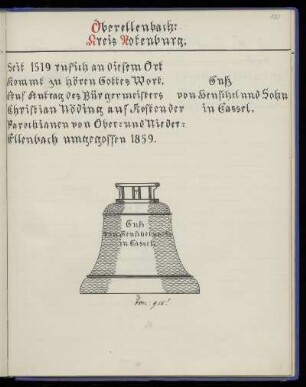 Oberellenbach:
Kreis Rotenburg.
Seit 1519 rufich an diesem Ort
Kommt zu hören Gottes Wort.
Auf Antrag des Bürgermeisters
Christian Nöding auf Kosten der
Parochianen von Ober= und Nieder=
Ellenbach umgegossen 1859.
Guß
von Henschel und Sohn
in Cassel.
Guß
von Henschel
in Cassel.